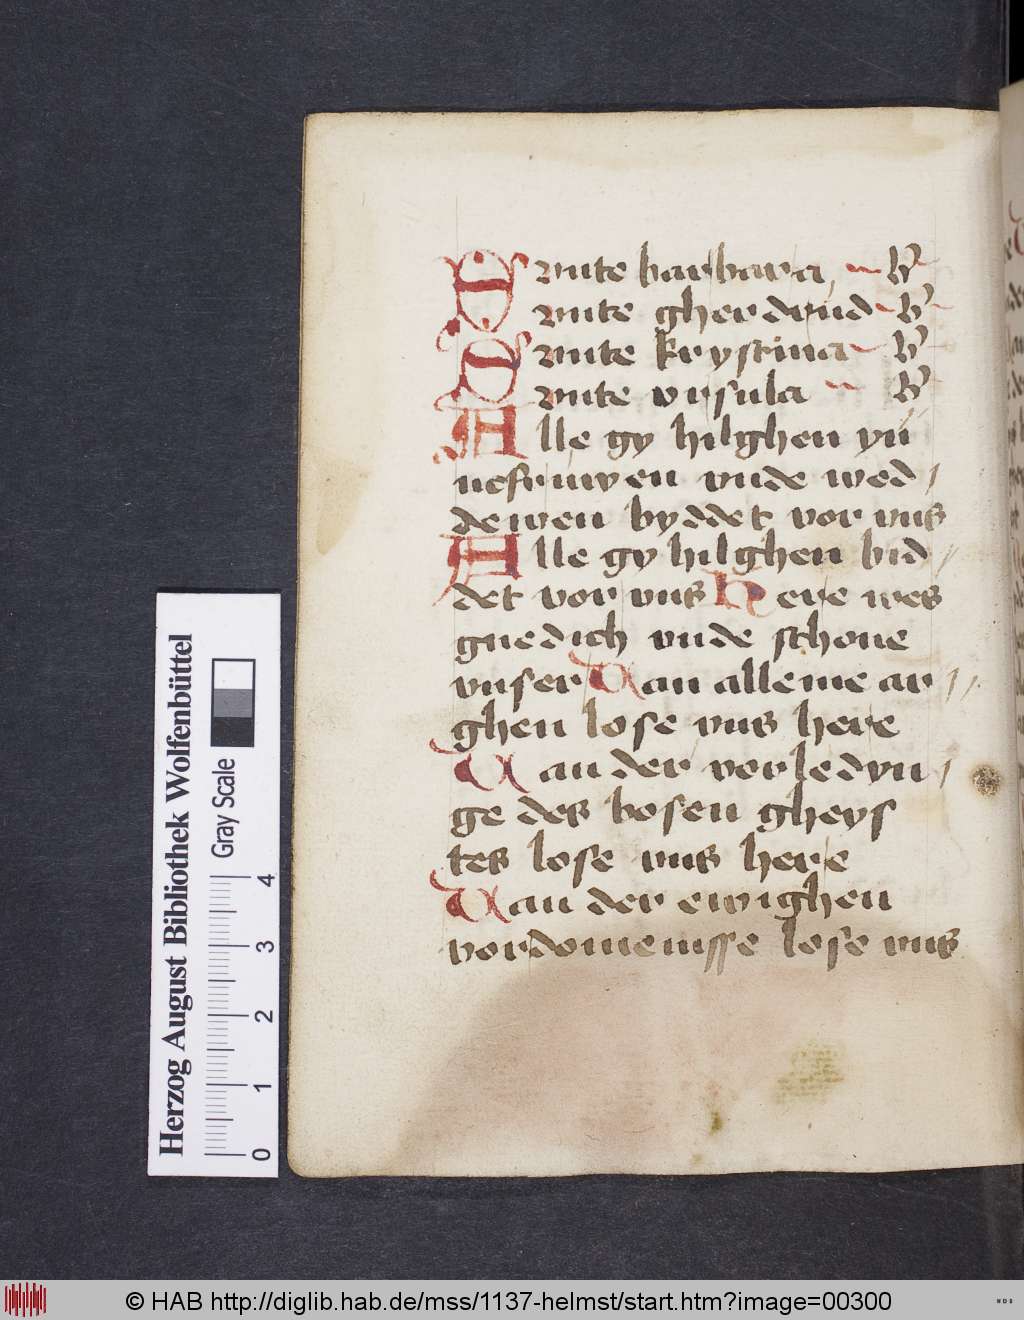 Sunte barbara, B
Sunte gherdrud B
Sunte krystina B
Sunte vrsula B
Alle gy hilghen yū
ncfruwen vnde wed
dewen byddet vor vns
Alle gy hilghen bid
det vor vns Here wes
gnedich vnde schone
vnser Uan alleme ar
ghen lose vns here
Uan der vorledyn
ge des bosen gheys
tes lose vns here
Uan der ewighen
vordomenisse lose vns
Herzog August Bibliothek Wolfenbüttel
Gray Scale
0 1 2 3 4
© HAB http://diglib.hab.de/mss/1137-helmst/start.htm?image=00300